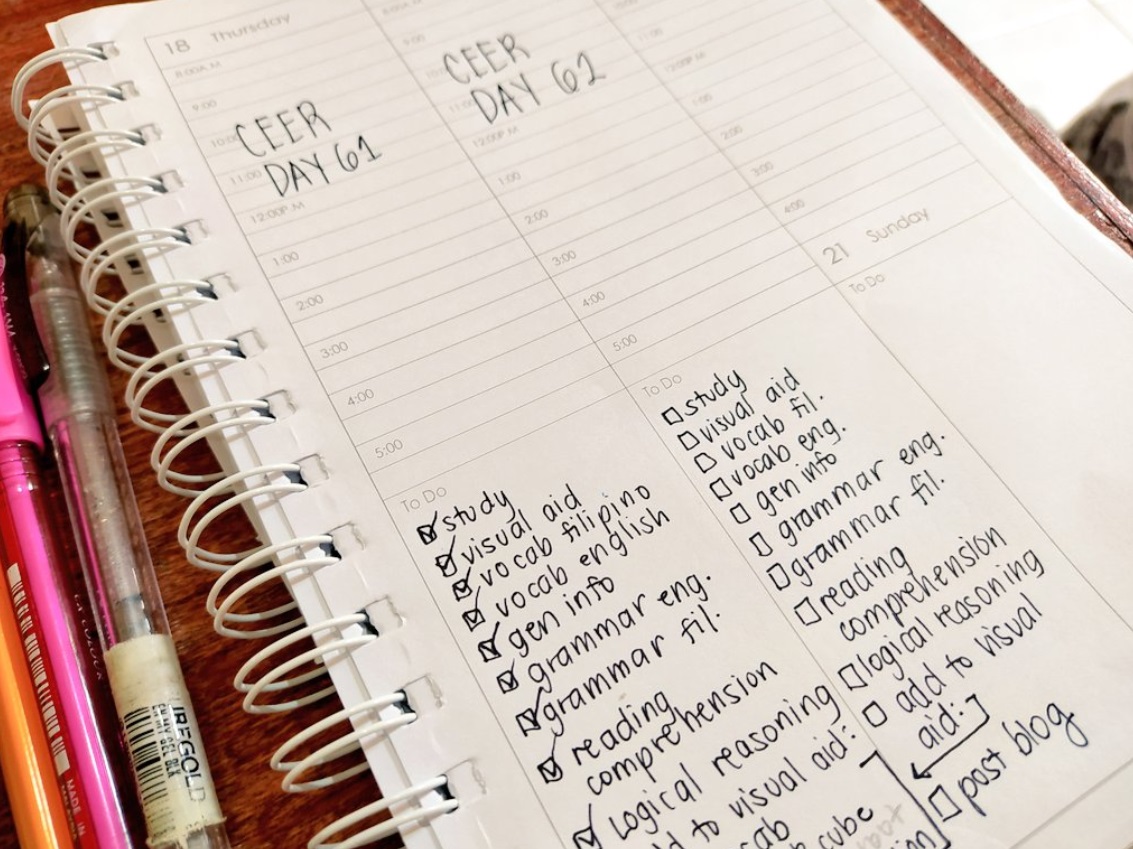 18 Thursday
8:00A.M
9:00
10:00
CEER
11:00
DAY 61
12:00P.M
1:00
2:00
3:00
4:00
5:00
To Do
study
visual aid
vocab filipino
vocab english
gen info
grammar eng.
grammar fil.
reading
comprehension
Logical reasoning
to visual aid:
cube
9:00
CEER
11:00
DAY 62
12:00P.M
1:00
2:00
3:00
4:00
5:00
To Do
study
visual aid
vocab fil.
vocab eng.
gen info
grammar eng.
grammar fil.
reading
comprehension
logical reasoning
add to visual
aid:
post blog
11:00
12:00P.M
1:00
2:00
3:00
4:00
21 Sunday
To Do
MADE IN